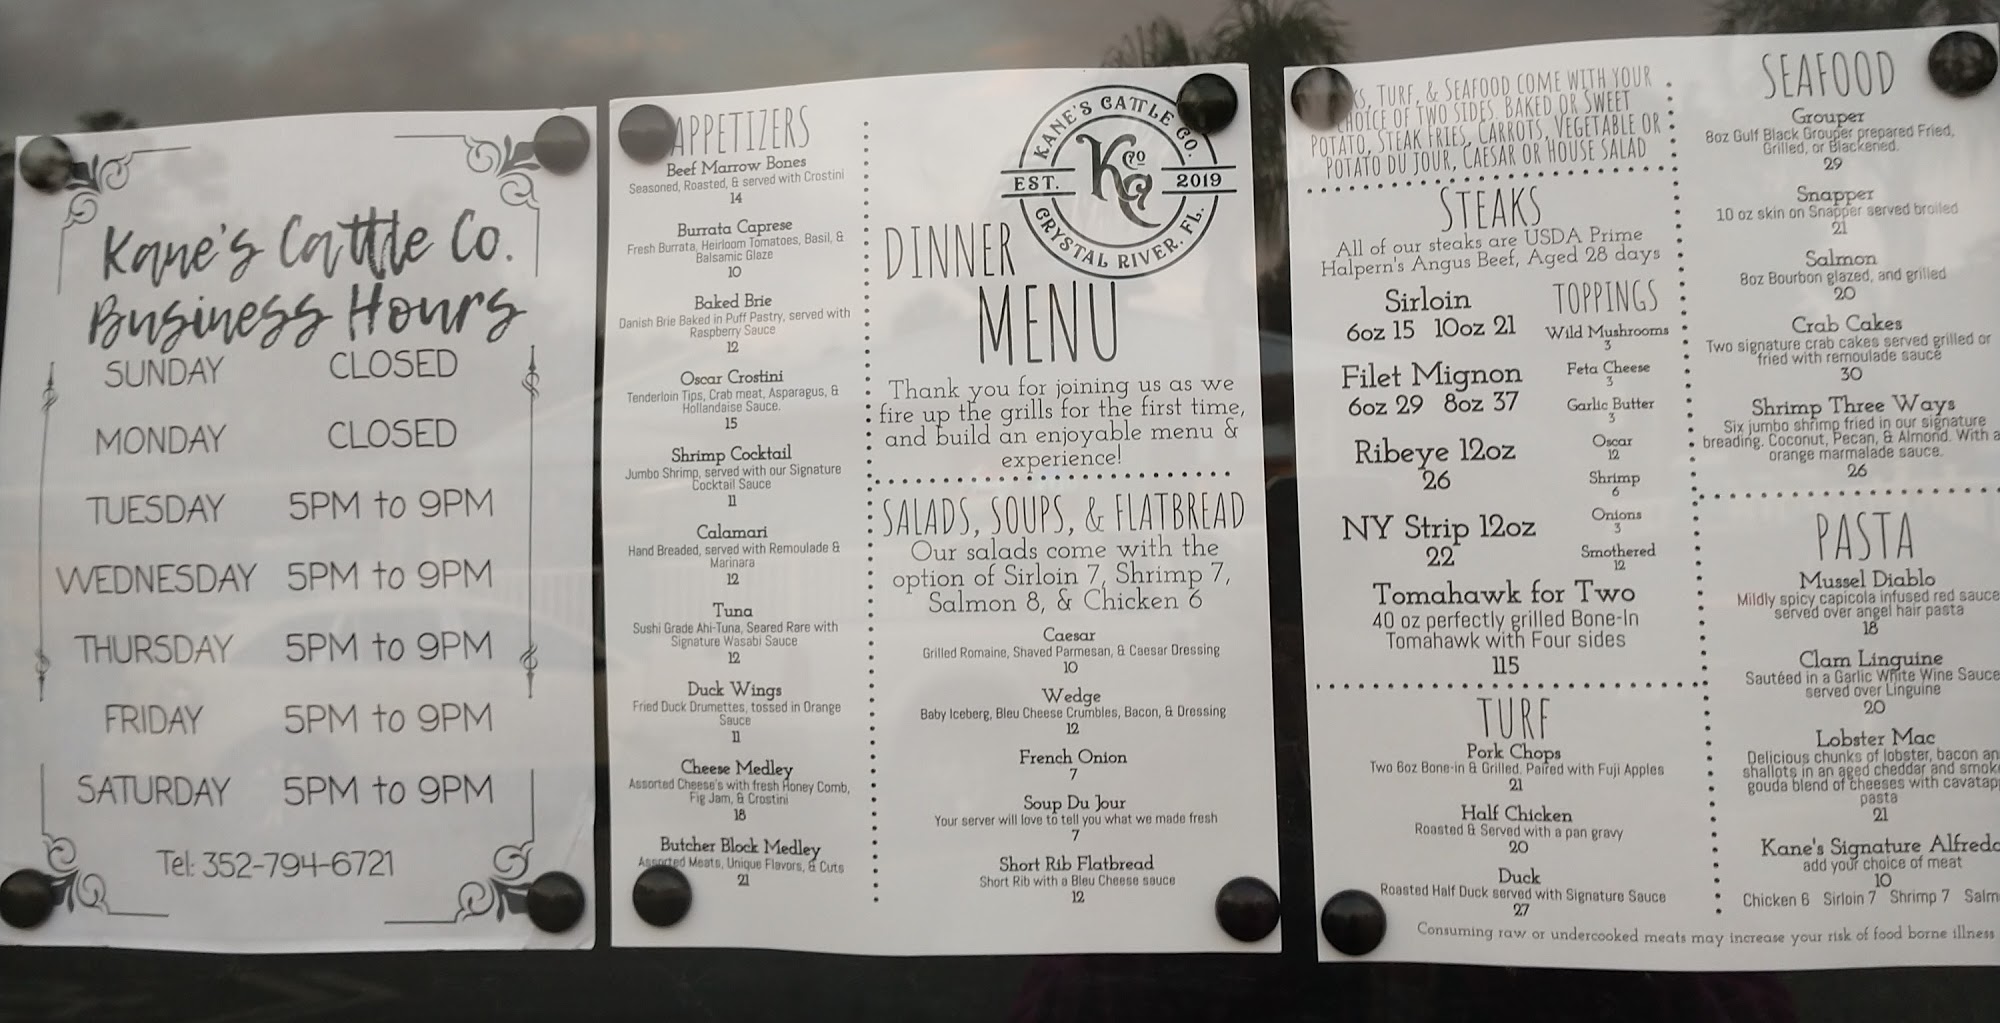 Kane's Cattle Co.
Business Hours
SUNDAY CLOSED
MONDAY CLOSED
TUESDAY 5PM to 9PM
WEDNESDAY 5PM to 9PM
THURSDAY 5PM to 9PM
FRIDAY 5PM to 9PM
SATURDAY 5PM to 9PM
Tel: 352-794-6721
APPETIZERS
Beef Marrow Bones
Seasoned, Roasted, & served with Crostini
14
Burrata Caprese
Fresh Burrata, Heirloom Tomatoes, Basil, &
Balsamic Glaze
10
Baked Brie
Danish Brie Baked in Puff Pastry, served with
Raspberry Sauce
12
Oscar Crostini
Tenderloin Tips, Crab meat, Asparagus, &
Hollandaise Sauce.
15
Shrimp Cocktail
Jumbo Shrimp, served with our Signature
Cocktail Sauce
11
Calamari
Hand Breaded, served with Remoulade &
Marinara
12
Tuna
Sushi Grade Ahi-Tuna, Seared Rare with
Signature Wasabi Sauce
12
Duck Wings
Fried Duck Drumettes, tossed in Orange
Sauce
11
Cheese Medley
Assorted Cheese's with fresh Honey Comb,
Fig Jam, & Crostini
18
Butcher Block Medley
Assorted Meats, Unique Flavors, & Cuts
21
KANE'S CATTLE CO.
KCO
EST. 2019
CRYSTAL RIVER, FL.
DINNER
MENU
Thank you for joining us as we
fire up the grills for the first time,
and build an enjoyable menu &
experience!
SALADS, SOUPS, & FLATBREAD
Our salads come with the
option of Sirloin 7, Shrimp 7,
Salmon 8, & Chicken 6
Caesar
Grilled Romaine, Shaved Parmesan, & Caesar Dressing
10
Wedge
Baby Iceberg, Bleu Cheese Crumbles, Bacon, & Dressing
12
French Onion
7
Soup Du Jour
Your server will love to tell you what we made fresh
7
Short Rib Flatbread
Short Rib with a Bleu Cheese sauce
12
KS, TURF, & SEAFOOD COME WITH YOUR
CHOICE OF TWO SIDES. BAKED OR SWEET
POTATO, STEAK FRIES, CARROTS, VEGETABLE OR
POTATO DU JOUR, CAESAR OR HOUSE SALAD
STEAKS
All of our steaks are USDA Prime
Halpern's Angus Beef, Aged 28 days
Sirloin
6oz 15 10oz 21
Filet Mignon
6oz 29 8oz 37
Ribeye 12oz
26
NY Strip 12oz
22
TOPPINGS
Wild Mushrooms
3
Feta Cheese
3
Garlic Butter
3
Oscar
12
Shrimp
6
Onions
3
Smothered
12
Tomahawk for Two
40 oz perfectly grilled Bone-In
Tomahawk with Four sides
115
TURF
Pork Chops
Two 6oz Bone-in & Grilled, Paired with Fuji Apples
21
Half Chicken
Roasted & Served with a pan gravy
20
Duck
Roasted Half Duck served with Signature Sauce
27
SEAFOOD
Grouper
8oz Gulf Black Grouper prepared Fried,
Grilled, or Blackened.
29
Snapper
10 oz skin on Snapper served broiled
21
Salmon
8oz Bourbon glazed, and grilled
20
Crab Cakes
Two signature crab cakes served grilled or
fried with remoulade sauce
30
Shrimp Three Ways
Six jumbo shrimp fried in our signature
breading. Coconut, Pecan, & Almond. With a
orange marmalade sauce.
26
PASTA
Mussel Diablo
Mildly spicy capicola infused red sauce
served over angel hair pasta
18
Clam Linguine
Sautéed in a Garlic White Wine Sauce
served over Linguine
20
Lobster Mac
Delicious chunks of lobster, bacon an
shallots in an aged cheddar and smok
gouda blend of cheeses with cavatap
pasta
21
Kane's Signature Alfredo
add your choice of meat
10
Chicken 6 Sirloin 7 Shrimp 7 Salm
Consuming raw or undercooked meats may increase your risk of food borne illness